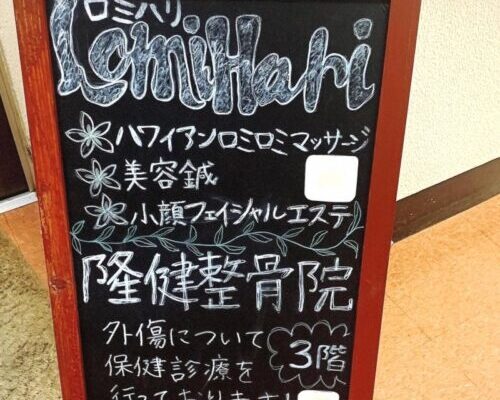 ロミハリ
LomiHari
ハワイアンロミロミマッサージ
美容鍼
小顔フェイシャルエステ
隆健整骨院
外傷について
保健診療を
3階
行っております!